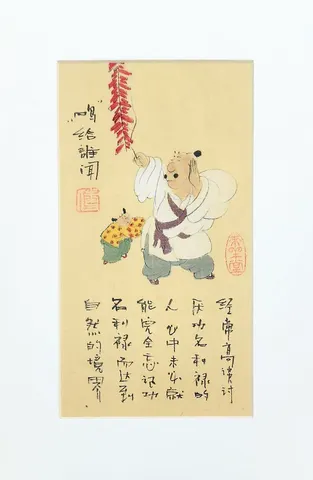 "鸣"给誰闻
经常高谈讨
厌功名利禄的
人心中未必就
能完全忘记功
名利禄而达到
自然的境界